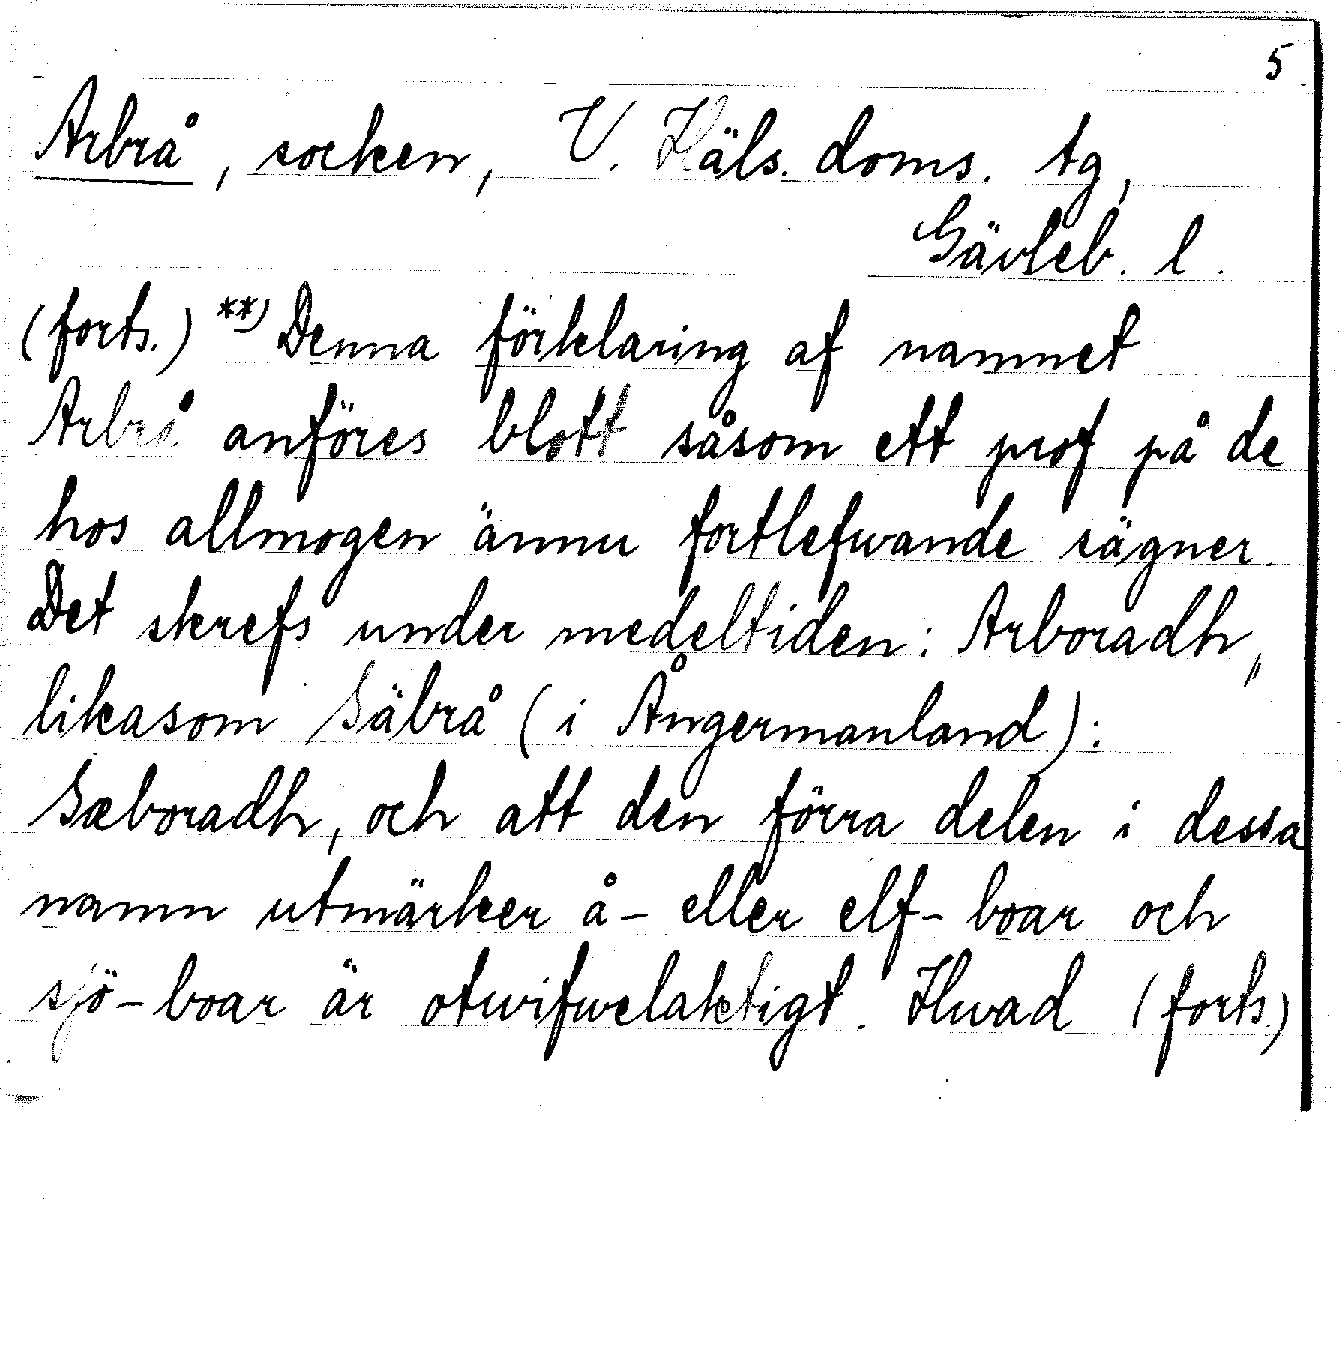 5
Arbrå, socken, V. Häls. doms. tg,
Gävleb. l.
(forts.) **) Denna förklaring af namnet
Arbrå anföres blott såsom ett prof på de
hos allmogen ännu fortlefwande sägner.
Det skrefs under medeltiden: Arboradh,,
likasom Säbrå (i Ångermanland):
Sæboradh, och att den förra delen i dessa
namn utmärker å- eller elf-boar och
sjö-boar är otwifwelaktigt. Hwad (forts.)